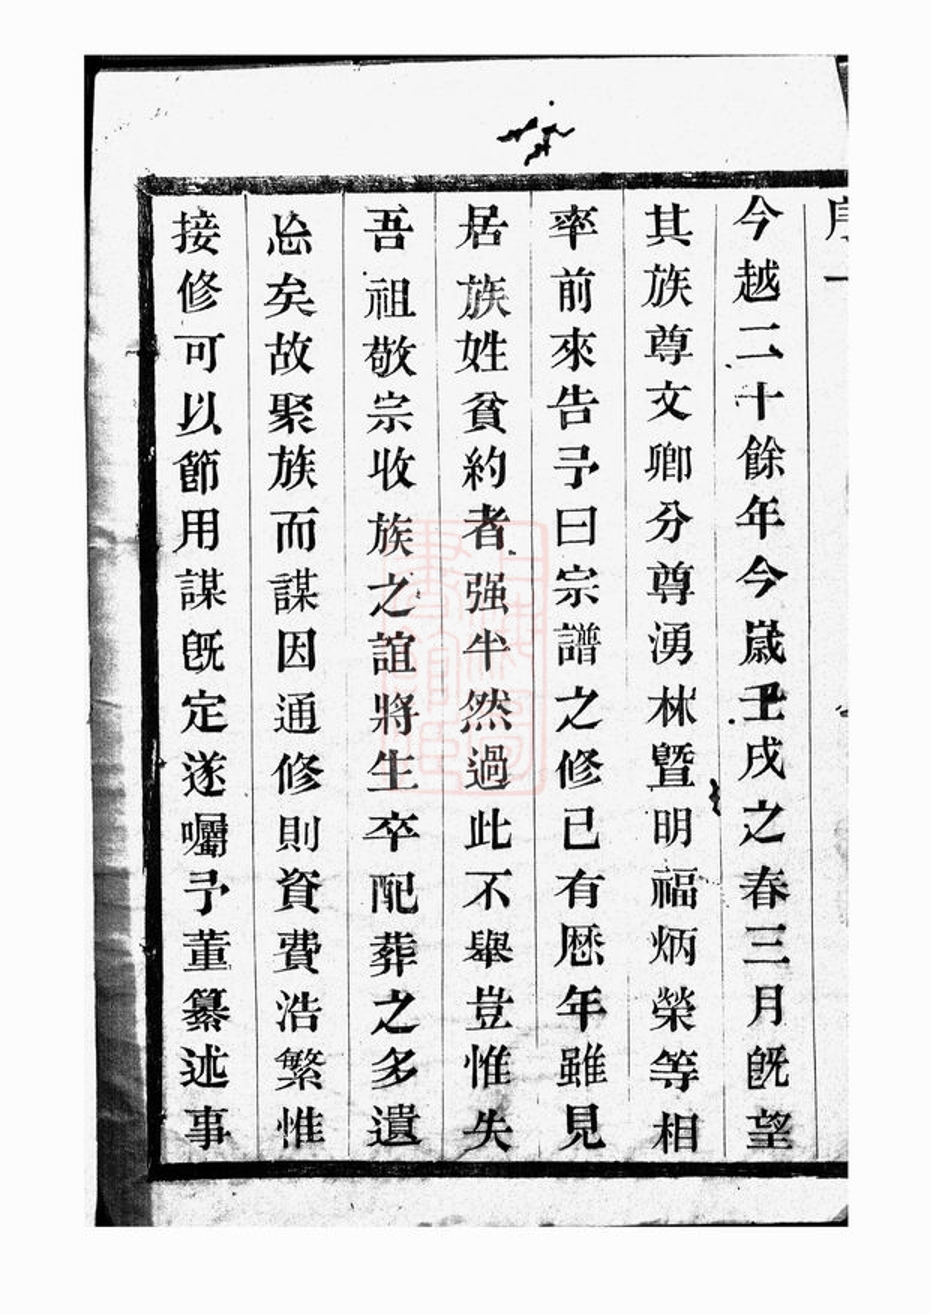 序 一
今越二十餘年今歲壬戌之春三月旣望
其族尊文卿分尊湧林曁明福炳榮等相
率前來告予曰宗譜之修已有厯年雖見
居族姓貧約者强半然過此不舉豈惟失
吾祖敬宗收族之誼將生卒配葬之多遺
忘矣故聚族而謀因通修則資費浩繁惟
接修可以節用謀旣定遂囑予董纂述事
上海圖書館藏